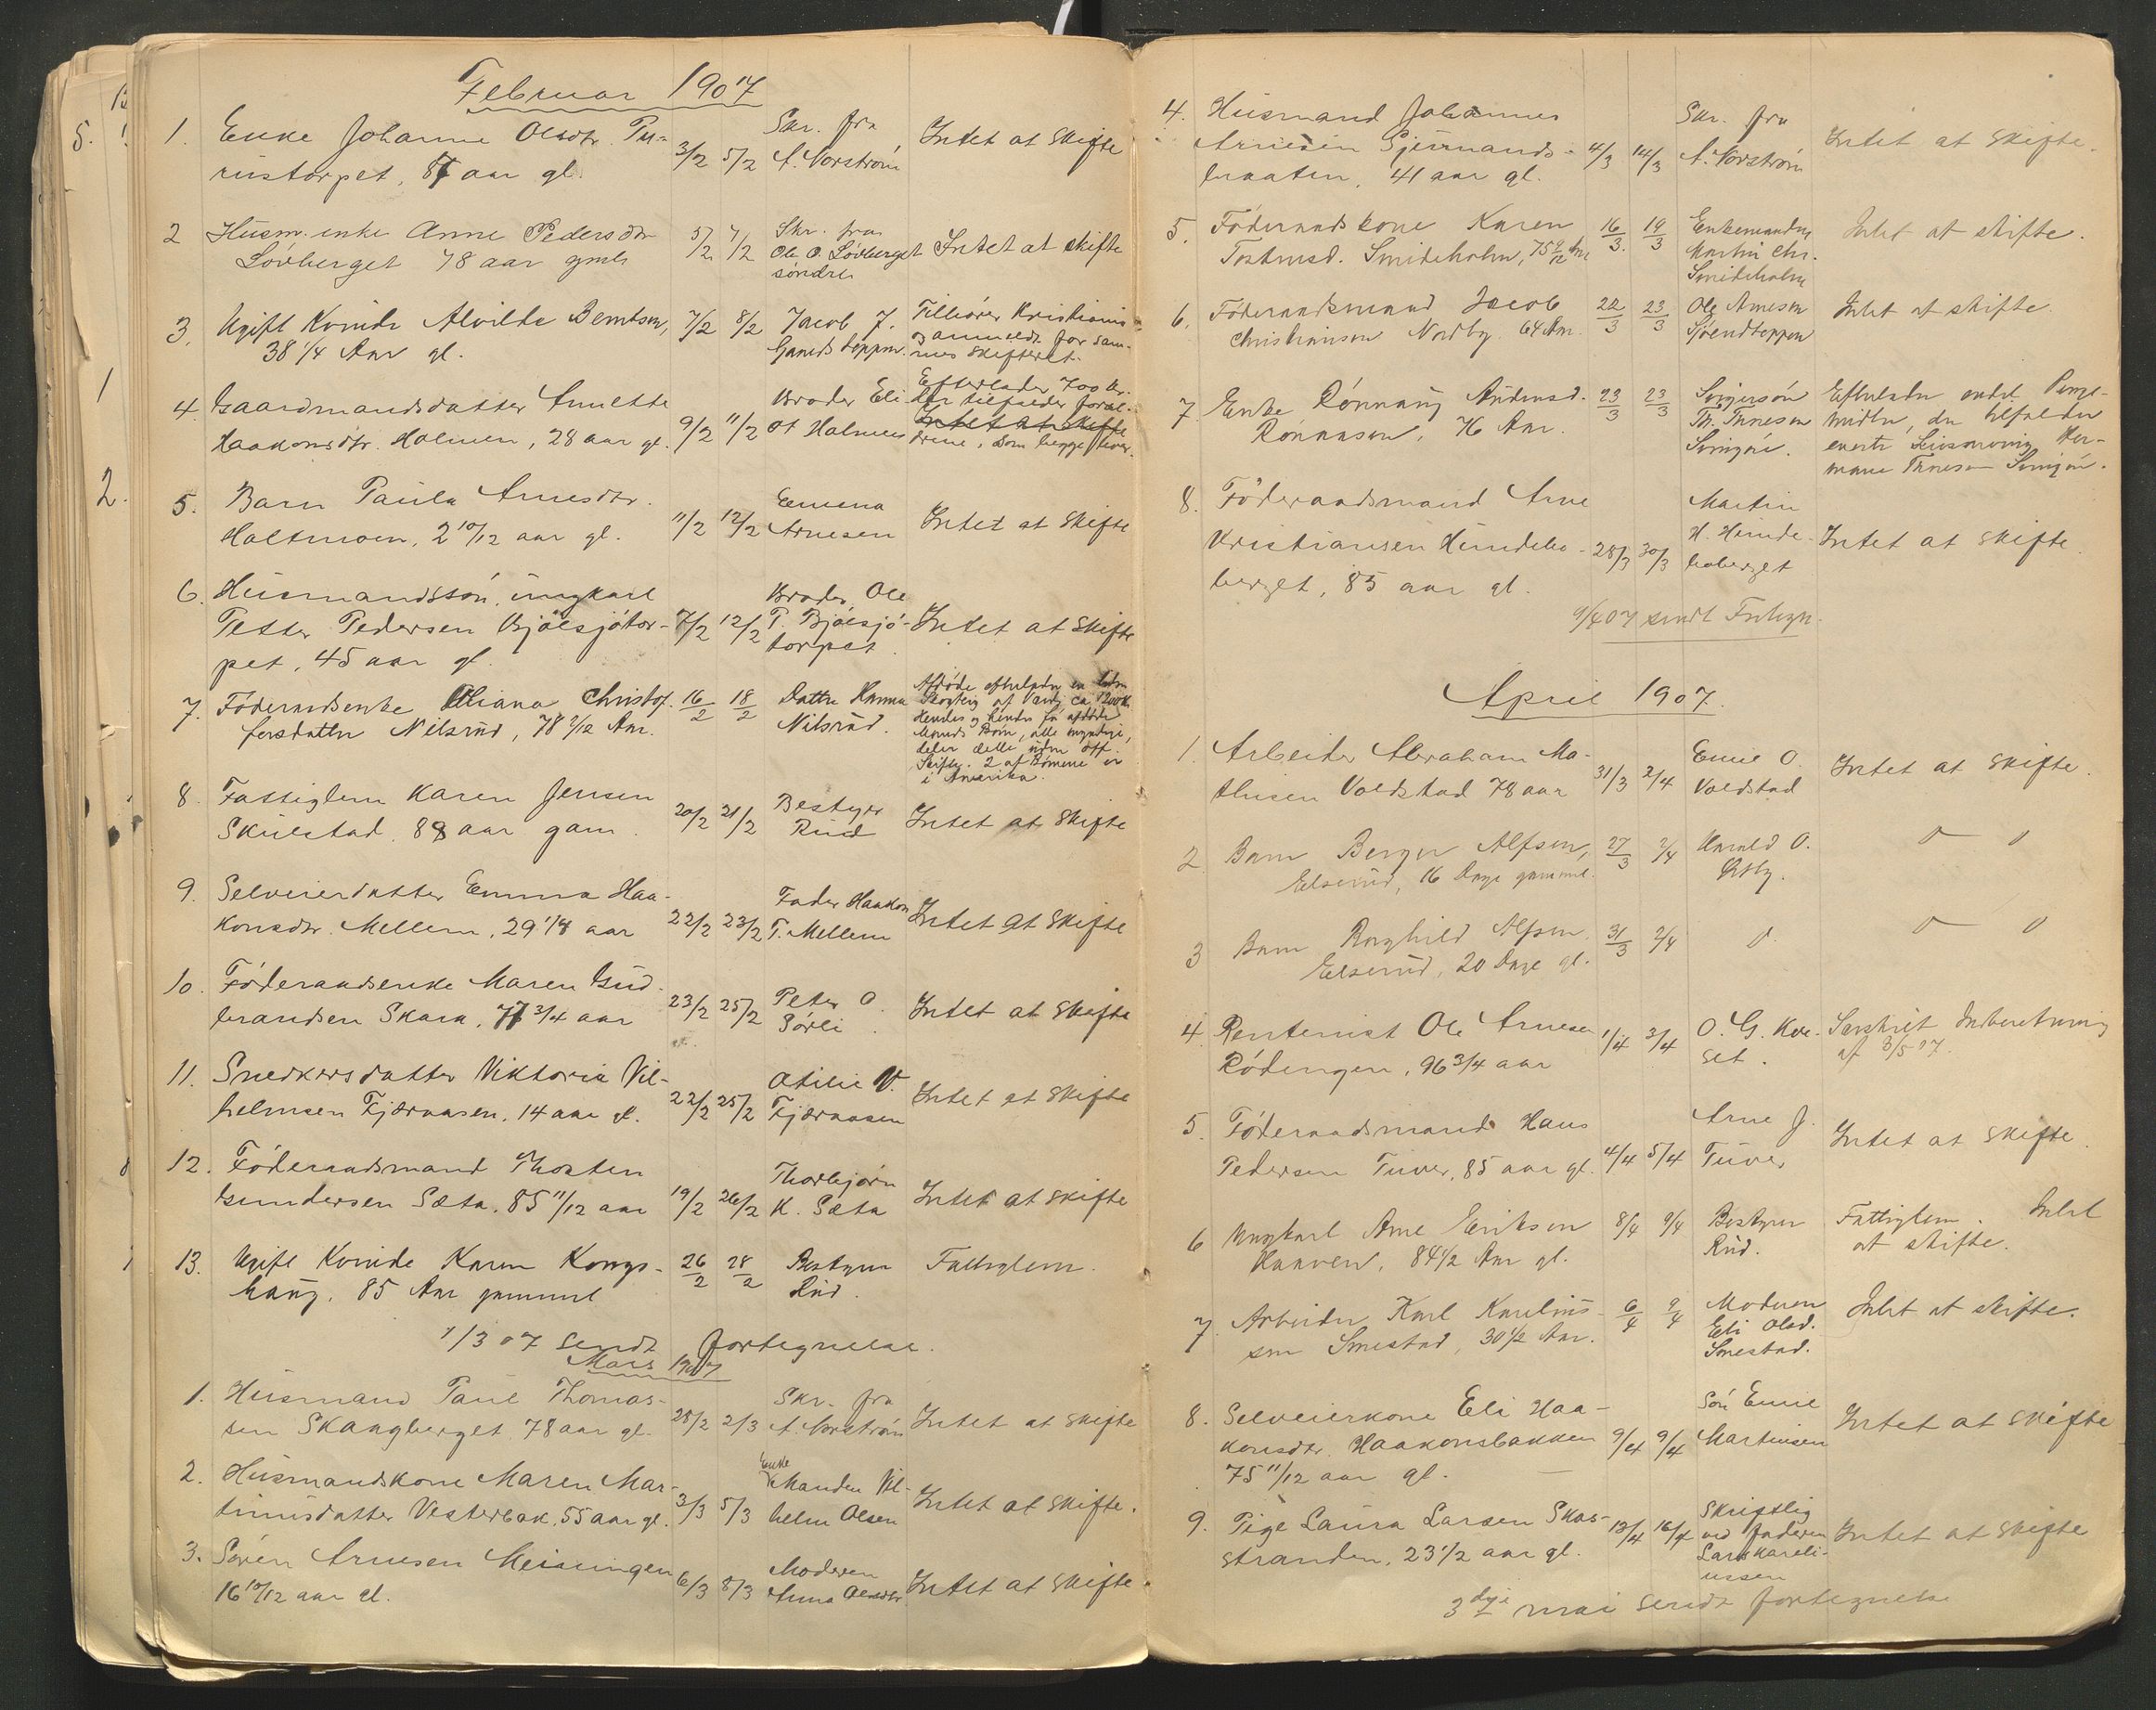 Februar 1907
1. Enke Johanne Olsdtr. Pu-
rustorpet, 87 aar gl. 3/2 5/2 Skr. fra
A. Norström Intet at Skifte
2 Husm. enke Anne Pedersdtr
Lövberget 78 aar gml. 5/2 7/2 Skr. fra
Ole O. Lövberget
söndre Intet at skifte
3. Ugift Kvinde Alvilde Berntsen,
38 1/4 Aar gl. 7/2 8/2 Jacob J.
Tilhörer Kristiania
og anmeldt for sam-
mes Skifteret.
4. Gaardmandsdatter Anette
Haakonsdtr. Holmen, 28 aar gl. 9/2 11/2 Broder Eli-
ot Holmen
Efterlader 700 kr.
der tilfalder foræl-
Intet at Skifte
drene, som begge lever.
5. Barn Paula Arnesdtr.
Holtmoen, 2 10/12 aar gl. 11/2 12/2 Emma
Arnesen Intet at Skifte
6. Husmandssön, ungkarl
Petter Pedersen Bjölsjötor-
pet, 45 aar gl. 7/2 12/2 Broder Ole
P. Bjölsjö-
torpet. Intet at Skifte
7. Föderaadsenke Oliana Christof-
fersdatter Nilsrud, 78 2/12 Aar. 16/2 18/2 Datter Hanna
Nilsrud.
Afdöde efterlader en
Skogteig af Værdi ca 1200 Kr.
Hendes og hendes för afdöde
Mands Börn, alle myndige,
deler dette uden off.
Skifte. 2 af Börnene er
i Amerika.
8. Fattiglem Karen Jensen
Skulstad 88 aar gam. 20/2 21/2 Bestyrer
Rud Intet at Skifte
9. Selveierdatter Emma Haa-
konsdtr. Mellem, 29 1/4 aar 22/2 23/2 Fader Haakon
T. Mellem Intet at Skifte
10. Föderaadsenke Maren Gud-
brandsen Skara, 77 3/4 aar 23/2 25/2 Peter O.
Sörli. Intet at Skifte
11. Snedkersdatter Viktoria Vil-
helmsen Fjæraasen, 14 aar gl. 22/2 25/2 Otilie V.
Fjæraasen Intet at Skifte
12. Föderaadsmand Thosten
Gundersen Sæta, 85 11/12 aar 19/2 26/2 Thorbjörn
K. Sæta Intet at Skifte
13. Ugift Kvinde Karen Kongs-
haug, 85 Aar gammel 26/2 28/2 Bestyrer
Rud. Fattiglem.
1/3 07 sendt fortegnelse.
Mars 1907
1. Husmand Paul Thomas-
sen Skaugberget 78 aar gl. 28/2 2/3 Skr. fra
A. Norström Intet at Skifte
2. Husmandskone Maren Mar-
tinusdatter Vesterbak, 55 aar gl. 3/3 5/3 Enke
Manden Vil-
helm Olsen Intet at Skifte.
3. Sören Arnesen Meisningen
16 10/12 aar gl. 6/3 8/3 Moderen
Anna Olsdtr Intet at Skifte.
4. Husmand Johannes
Arnesen Gjermands-
braaten, 41 aar gl. 4/3 14/3 Skr. fra
A. Norström Intet at skifte.
5. Föderaadskone Karen
Tostensd. Smideholm, 75 9/12 Aar 16/3 19/3 Enkemanden
Martin Chr.
Smideholm Intet at skifte.
6. Föderaadsmand Jacob
Christiansen Nordby. 64 Aar. 22/3 23/3 Ole Arnesen
Intet at skifte.
7 Enke Rönnaug Andersd.
Rönaasen, 76 Aar. 23/3 23/3
Efterlader endel Penge-
midler, der tilfalder
8. Föderaadsmand Arne
Kristiansen Hundebo-
berget, 85 aar gl. 28/3 30/3 Martin
H. Hunde-
boberget Intet at skifte.
9/4 07 sendt Fortegn.
April 1907.
1. Arbeider Abraham Ma-
thisen Voldstad 78 aar 31/3 2/4 Emil O.
Voldstad Intet at skifte.
2 Barn Berger Alfsen,
Elserud, 16 Dage gammel. 27/3 2/4 Harald O.
Østby.
3 Barn Ragnhild Alfsen
Elserud, 20 Dage gl. 31/3 2/4
4. Rentenist Ole Arnesen
Rödengen, 96 3/4 aar 1/4 3/4 O. G. Kve-
set. Særskilt Indberetning
af 3/5 07.
5. Föderaadsmand Hans
Pedersen Tuver, 85 aar gl. 4/4 5/4 Arne J.
Tuver Intet at skifte.
6 Ungkarl Arne Eriksen
Haaven, 84 1/2 Aar gl. 8/4 9/4 Bestyrer
Rud. Fattiglem. Intet
at skifte.
7. Arbeider Karl Karelius-
sen Smestad, 30 1/2 Aar. 6/4 9/4 Moderen
Eli Olsd.
Smestad. Intet at skifte.
8. Selveierkone Eli Haa-
konsdtr. Haakonsbakken
75 11/12 aar gl. 9/4 9/4 Sön Emil
Martinsen Intet at skifte
9. Pige Laura Larsen Skas-
stranden, 23 1/2 aar gl. 13/4 16/4 Skriftlig
ved faderen
Lars Kareli-
ussen Intet at skifte
3 dje mai sendt fortegnelse